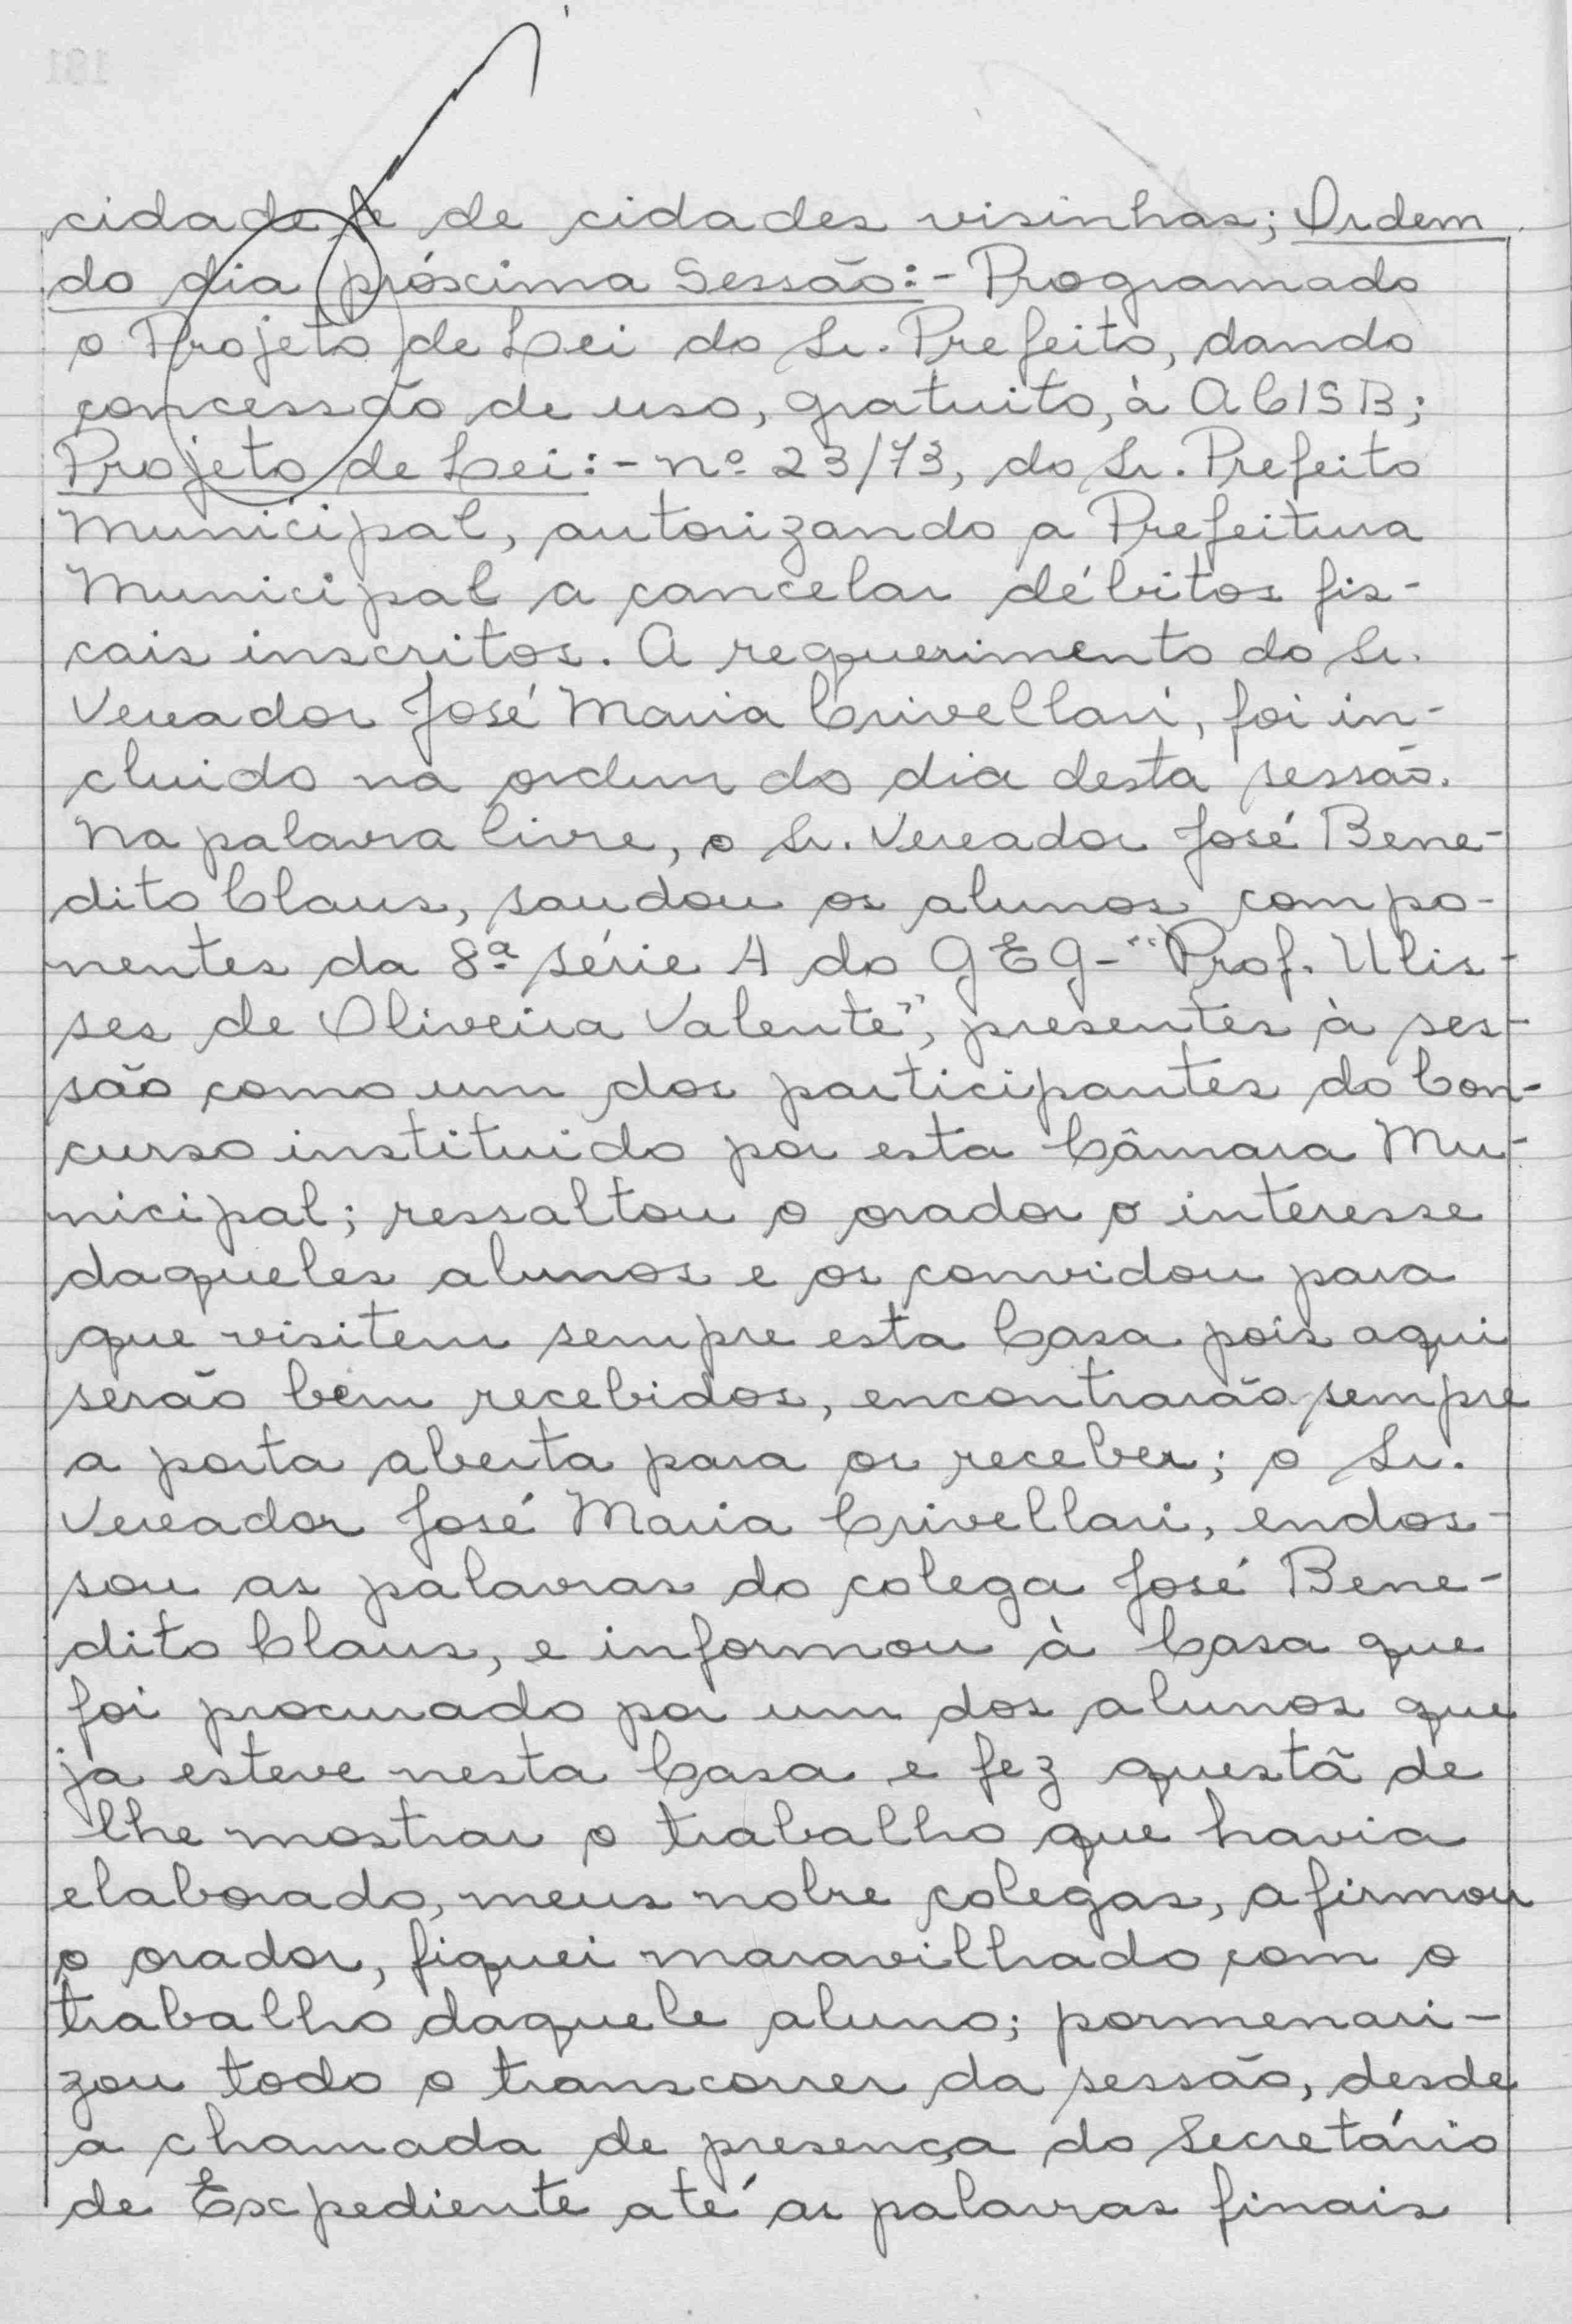 cidade e de cidades visinhas; Ordem
do dia próxima Sessão:- Programado
o Projeto de Lei do Sr. Prefeito, dando
concessão de uso, gratuito, à ACISB;
Projeto de Lei:- nº 23/73, do Sr. Prefeito
Municipal, autorizando a Prefeitura
Municipal a cancelar débitos fis-
cais inscritos. A requerimento do Sr.
Vereador José Maria Crivellari, foi in-
cluido na ordem do dia desta sessão.
Na palavra livre, o Sr. Vereador José Bene-
dito Claus, saudou os alunos compo-
nentes da 8ª série A do GEG- "Prof. Ulis-
ses de Oliveira Valente", presentes à ses-
são como um dos participantes do Con-
curso instituido por esta Câmara Mu-
nicipal; ressaltou o orador o interesse
daqueles alunos e os convidou para
que visitem sempre esta Casa pois aqui
serão bem recebidos, encontrarão sempre
a porta aberta para os receber; o Sr.
Vereador José Maria Crivellari, endos-
sou as palavras do colega José Bene-
dito Claus, e informou à Casa que
foi procurado por um dos alunos que
ja esteve nesta Casa e fez questã de
lhe mostrar o trabalho que havia
elaborado, meus nobre colegas, afirmou
o orador, fiquei maravilhado com o
trabalho daquele aluno; pormenari-
zou todo o transcorrer da sessão, desde
a chamada de presença do Secretário
de Expediente até as palavras finais